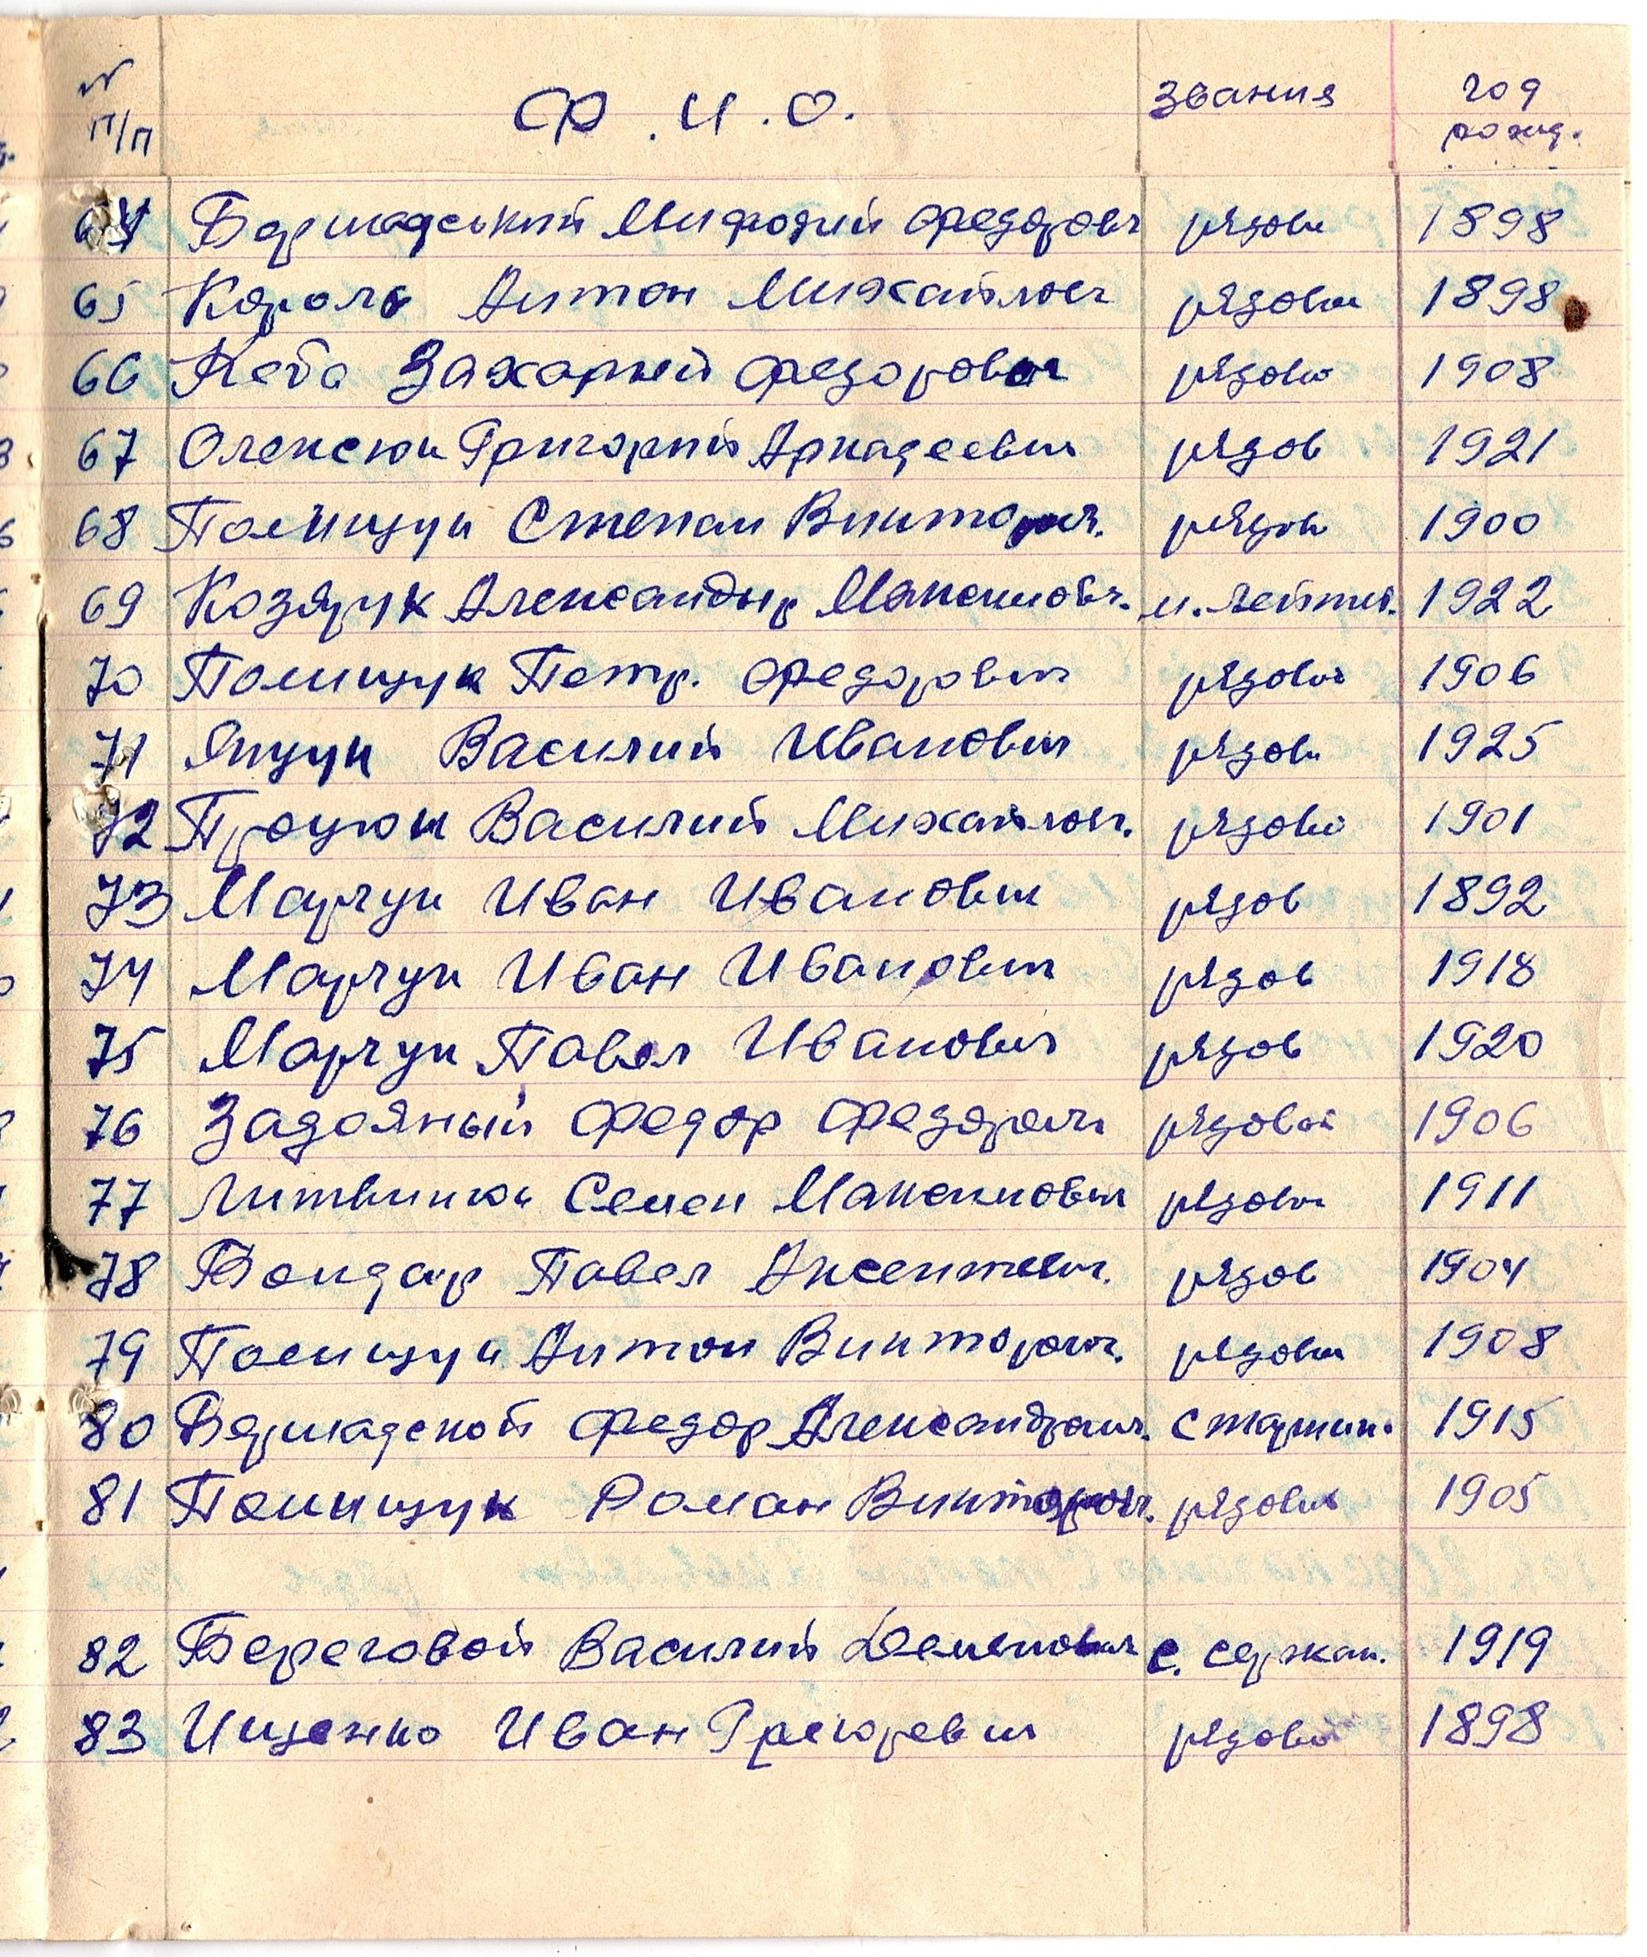 № п/п Ф.И.О. звания год рожд.
64 Бершадський Мифодий Федорович рядовы 1898
65 Король Антон Михайлович рядовы 1898
66 Кеба Захарий Федорович рядово 1908
67 Олексюк Григорий Аркадеевич рядов 1921
68 Полищук Степан Викторич. рядов 1900
69 Козярук Александыр Максимовч. м. лейтн. 1922
70 Полищук Петр. Федорович рядовой 1906
71 Яцук Василий Иванович рядов 1925
72 Процюк Василий Михайлович. рядово 1901
73 Марчук Иван Иванович рядов 1892
74 Марчук Иван Иванович рядов 1918
75 Марчук Павел Иванович рядов 1920
76 Задояный Федор Федорович рядовой 1906
77 Литвинюк Семен Максимович рядовы 1911
78 Бондар Павел Аксентевич. рядов 1904
79 Полищук Антон Викторович. рядовы 1908
80 Вершадской Федор Александрович. старшин. 1915
81 Полищук Роман Викторович. рядовы 1905
82 Береговой Василий Семенович с. сержан. 1919
83 Ищенко Иван Грегоревич рядово 1898